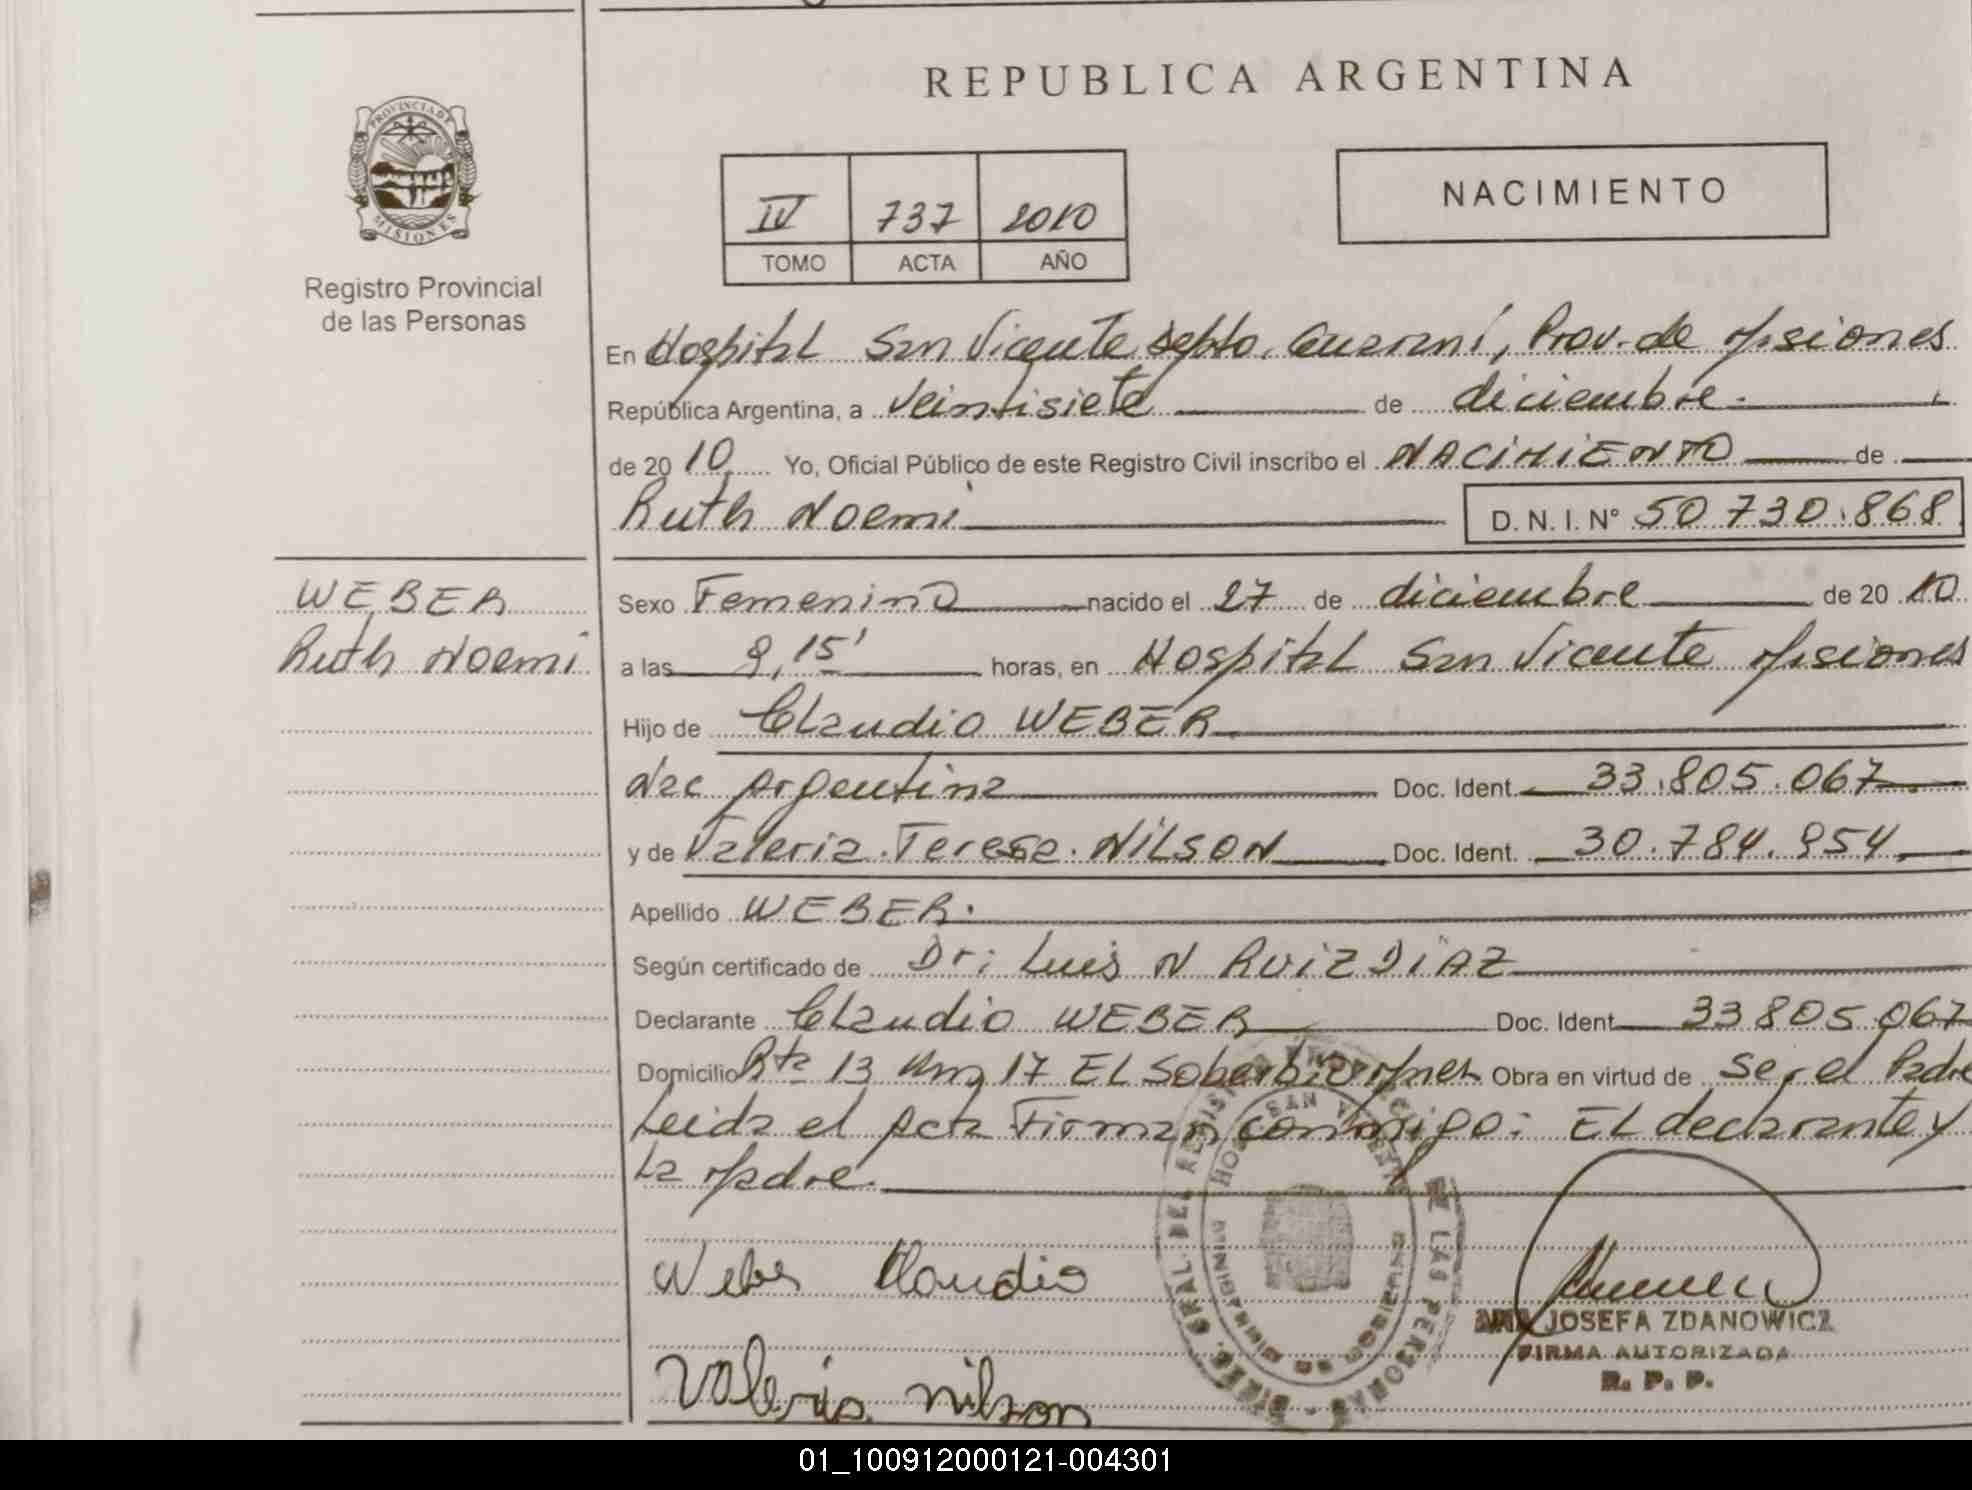 REPUBLICA ARGENTINA
PROVINCIA DE
MISIONES
Registro Provincial
de las Personas
IV 737 2010
TOMO ACTA AÑO
NACIMIENTO
En Hospital San Vicente Depto. Guarani, Prov. de Misiones
República Argentina, a Veintisiete de diciembre.
de 20 10 Yo, Oficial Público de este Registro Civil inscribo el NACIMIENTO de
Ruth Noemi D. N. I. N° 50 730.868
WEBER
Ruth Noemi
Sexo Femenino nacido el 27 de diciembre de 20 10
a las 9,15' horas, en Hospital San Vicente Misiones
Hijo de Claudio WEBER
Nac Argentina Doc. Ident. 33.805.067
y de Valeria Teresa NILSON Doc. Ident. 30.784.954
Apellido WEBER.
Según certificado de Dr: Luis N RUIZ DIAZ
Declarante Claudio WEBER Doc. Ident 33 805 067
Domicilio Rta 13 Km 17 EL Soberbio Mnes Obra en virtud de Ser el Padre
Leida el Acta Firman conmigo: EL declarante y
La Madre.
Weber Claudio
Valeria nilson
DIREC. GRAL. DEL REGISTRO DE LAS PERSONAS
HOSP SAN VICENTE
ANA JOSEFA ZDANOWICZ
FIRMA AUTORIZADA
R. P. P.
01_100912000121-004301